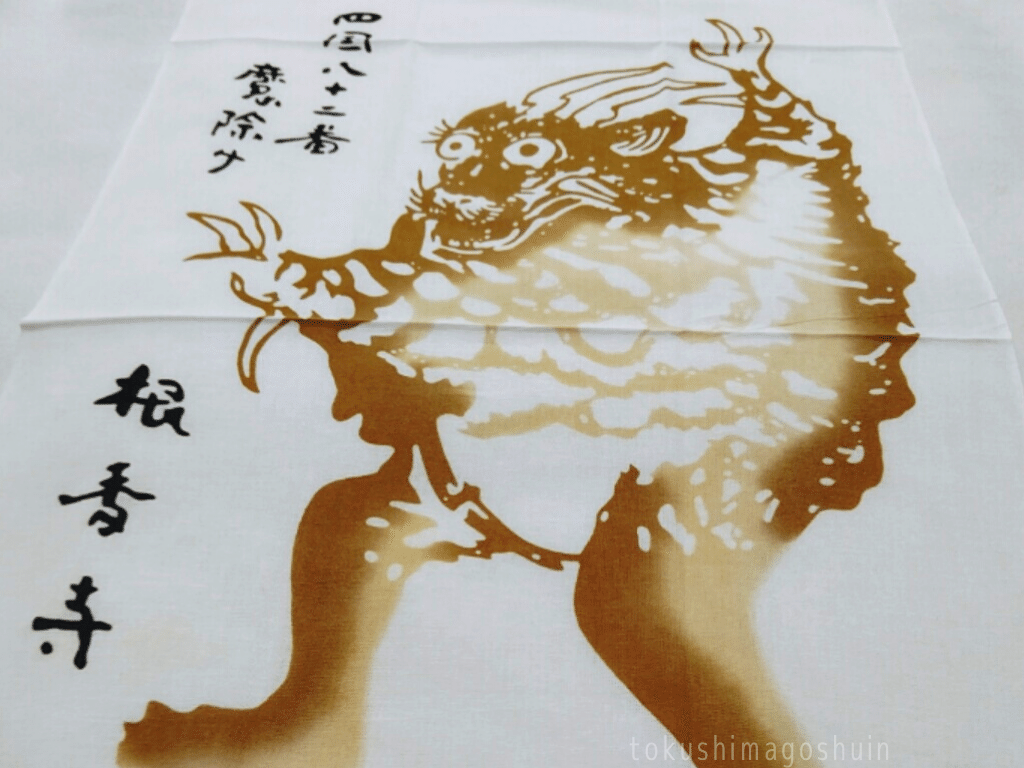 四国八十二番
魔除け
根香寺
tokushimagoshuin